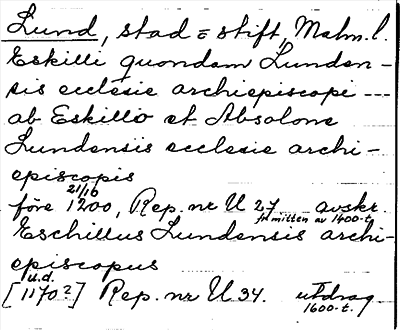 Lund, stad = stift, Malm. l.
Eskilli quondam Lunden-
sis ecclesie archiepiscopi ---
ab Eskillo et Absolone
Lundensis ecclesie archi-
episcopis
före 21/10 1200, Rep. nr U 27 avskr. fr. mitten av 1400-t.
Eschillus Lundensis archi-
episcopus
u.d.
[1170?] Rep. nr U 34. utdrag 1600-t.